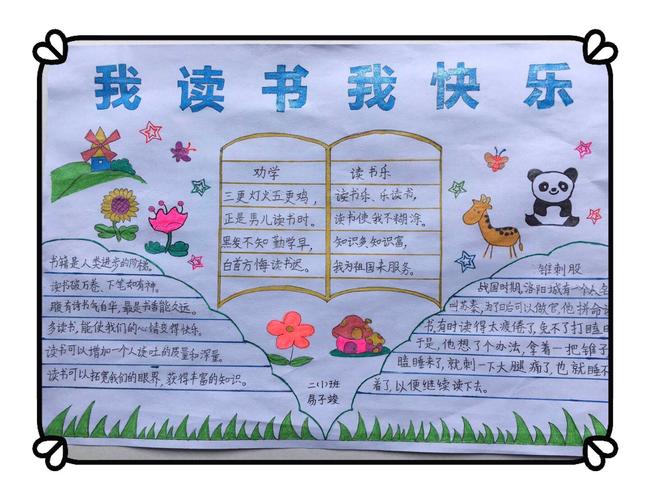 我读书我快乐
劝学
三更灯火五更鸡，
正是男儿读书时。
黑发不知勤学早，
白首方悔读书迟。
读书乐
读书乐、乐读书，
读书使我不糊涂。
知识多知识富，
我为祖国来服务。
书籍是人类进步的阶梯。
读书破万卷、下笔如有神。
腹有诗书气自华，最是书香能久远。
多读书，能使我们的心情变得快乐。
读书可以增加一个人谈吐的质量和深度。
读书可以拓宽我们的眼界，获得丰富的知识。
锥刺股
战国时期，洛阳城有一个人名
叫苏秦，为了日后可以做官，他拼命读
书有时读得太疲倦了，免不了打瞌
于是，他想了个办法，拿着一把锥子
瞌睡来了，就刺一下大腿，痛了，也就睡不
着了，以便继续读下去。
二(1)班
易子竣